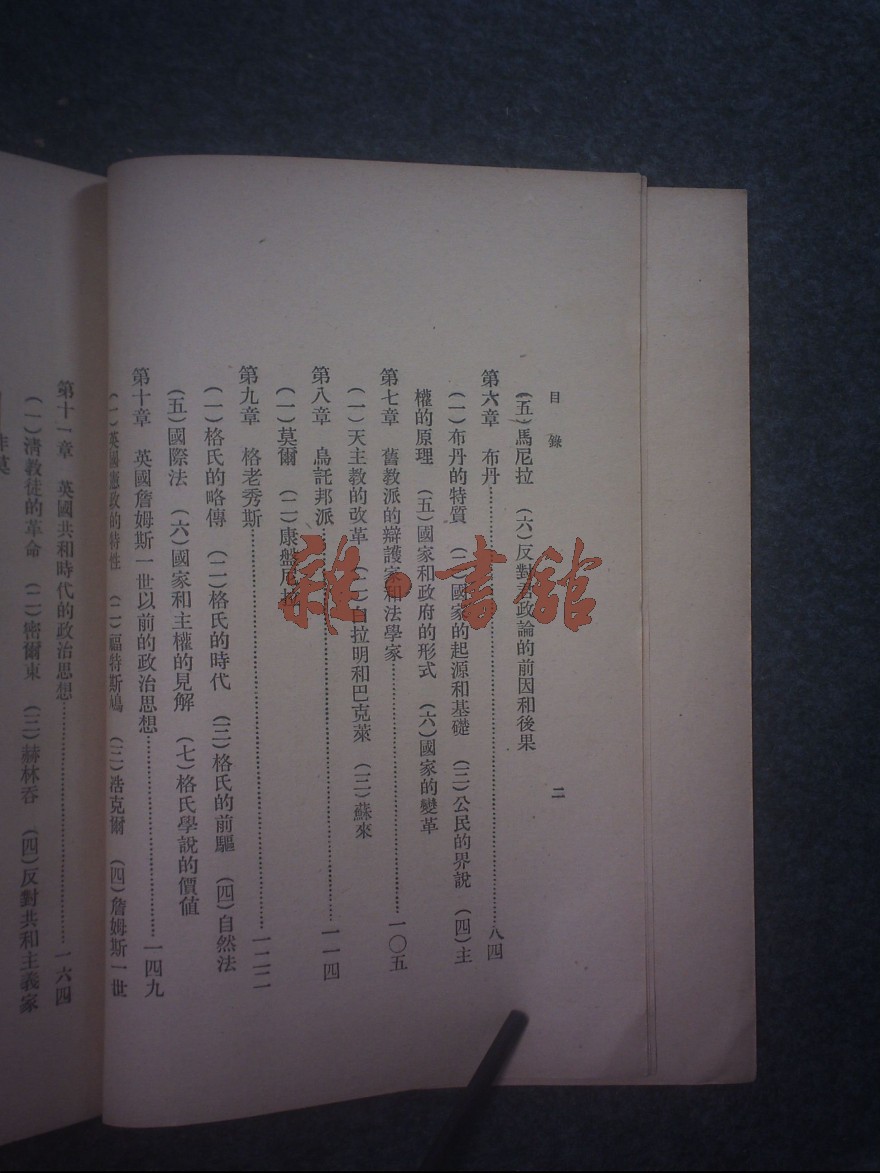 目錄
二
(五)馬尼拉 (六)反對君政論的前因和後果
第六章 布丹…………八四
(一)布丹的特質 (二)國家的起源和基礎 (三)公民的界說 (四)主
權的原理 (五)國家和政府的形式 (六)國家的變革
第七章 舊教派的辯護家和法學家…………一〇五
(一)天主教的改革 (二)白拉明和巴克萊 (三)蘇來
第八章 烏託邦派…………一一四
(一)莫爾 (二)康盤尼拉
第九章 格老秀斯…………一二二
(一)格氏的略傳 (二)格氏的時代 (三)格氏的前驅 (四)自然法
(五)國際法 (六)國家和主權的見解 (七)格氏學說的價值
第十章 英國詹姆斯一世以前的政治思想…………一四九
(一)英國憲政的特性 (二)福特斯鳩 (三)浩克爾 (四)詹姆斯一世
第十一章 英國共和時代的政治思想…………一六四
(一)清教徒的革命 (二)密爾東 (三)赫林吞 (四)反對共和主義家
雜·書館